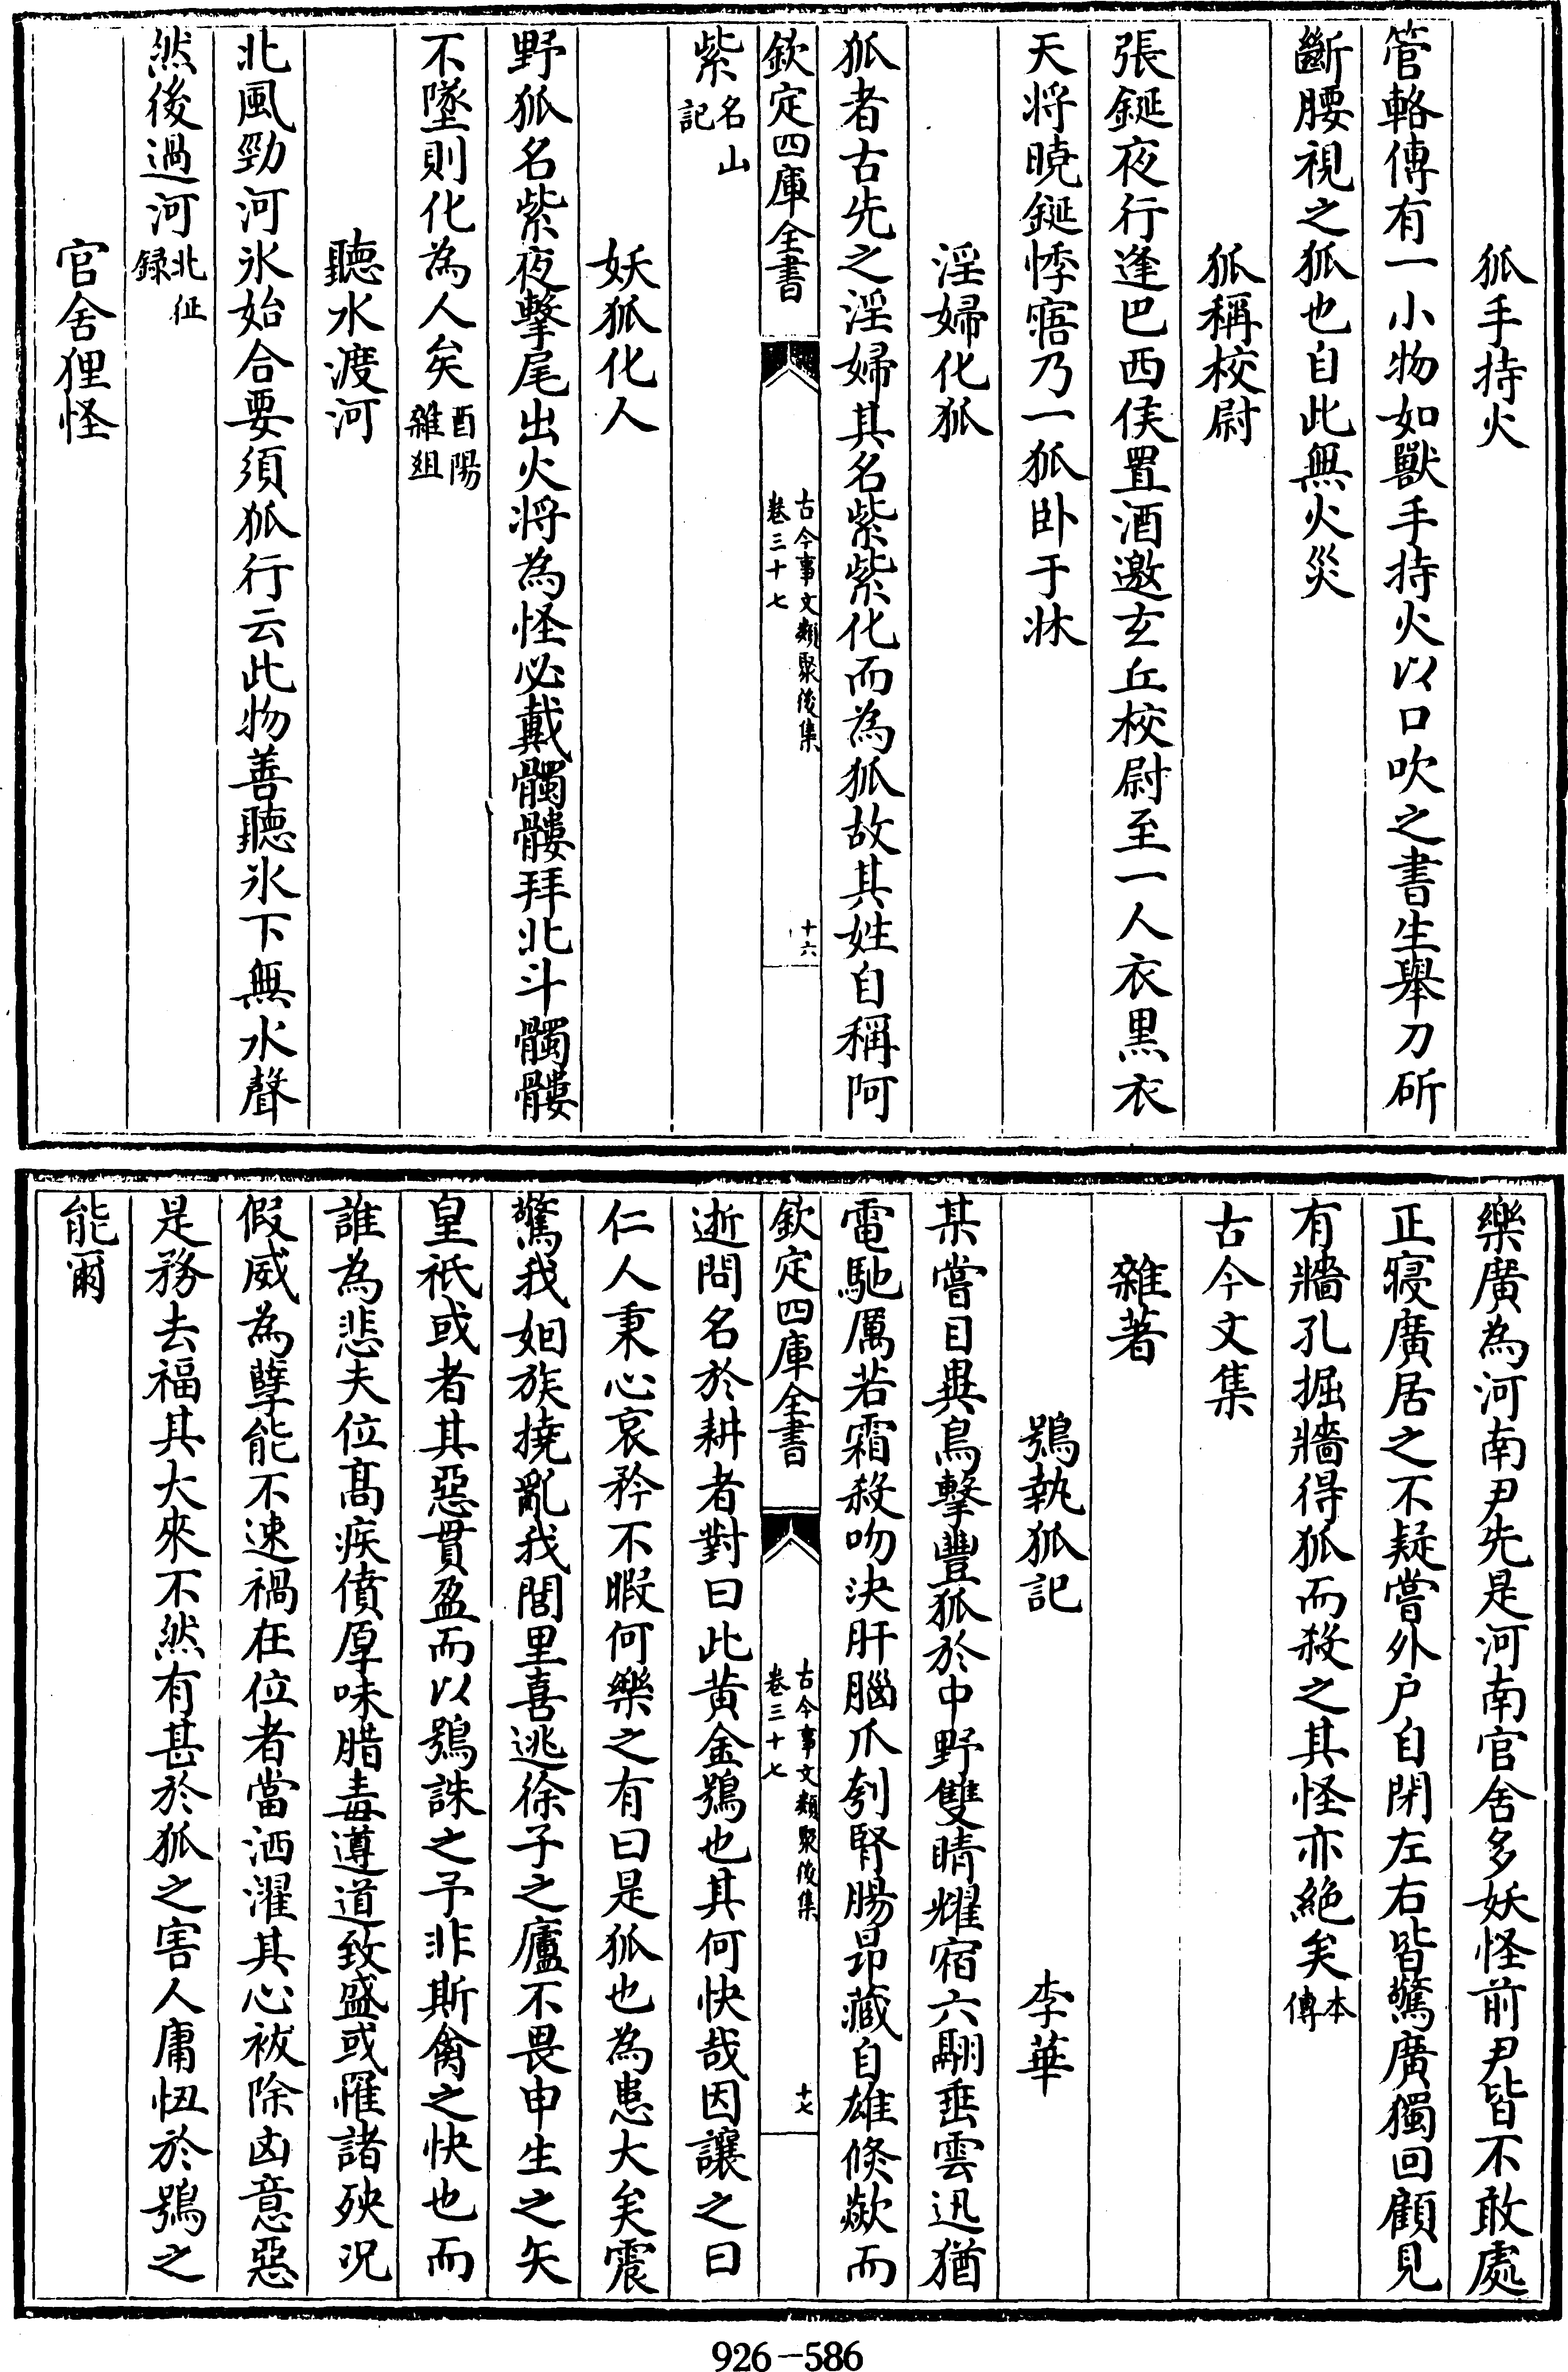 狐手持火
管輅傳有一小物如獸手持火以口吹之書生舉刀斫
斷腰視之狐也自此無火災
狐稱校尉
張鋋夜行逢巴西侯置酒邀玄丘校尉至一人衣黒衣
天將曉鋋悸寤乃一狐卧于牀
淫婦化狐
狐者古先之淫婦其名紫紫化而為狐故其姓自稱阿
欽定四庫全書
古今事文類聚後集
卷三十七
十六
紫名山記
妖狐化人
野狐名紫夜擊尾出火將為怪必戴髑髏拜北斗髑髏
不墜則化為人矣酉陽雜俎
聽水渡河
北風勁河氷始合要須狐行云此物善聽氷下無水聲
然後過河北征録
官舍狸怪
樂廣為河南尹先是河南官舍多妖怪前尹皆不敢處
正寢廣居之不疑嘗外户自閉左右皆驚廣獨回顧見
有牆孔掘牆得狐而殺之其怪亦絶矣本傳
古今文集
雜著
鶚執狐記
李華
某嘗目異鳥擊豐狐於中野雙睛耀宿六翮垂雲迅猶
電馳厲若霜殺吻决肝腦爪刳腎腸昂藏自雄倐歘而
欽定四庫全書
古今事文類聚後集
卷三十七
十七
逝問名於耕者對曰此黄金鶚也其何快哉因讓之曰
仁人秉心哀矜不暇何樂之有曰是狐也為患大矣震
驚我姻族撓亂我閭里喜逃徐子之廬不畏申生之矢
皇祇或者其惡貫盈而以鶚誅之予非斯禽之快也而
誰為悲夫位髙疾僨厚味腊毒遵道致盛或罹諸殃况
假威為孽能不速禍在位者當洒濯其心祓除凶意惡
是務去福其大來不然有甚於狐之害人庸忸於鶚之
能爾
926-586